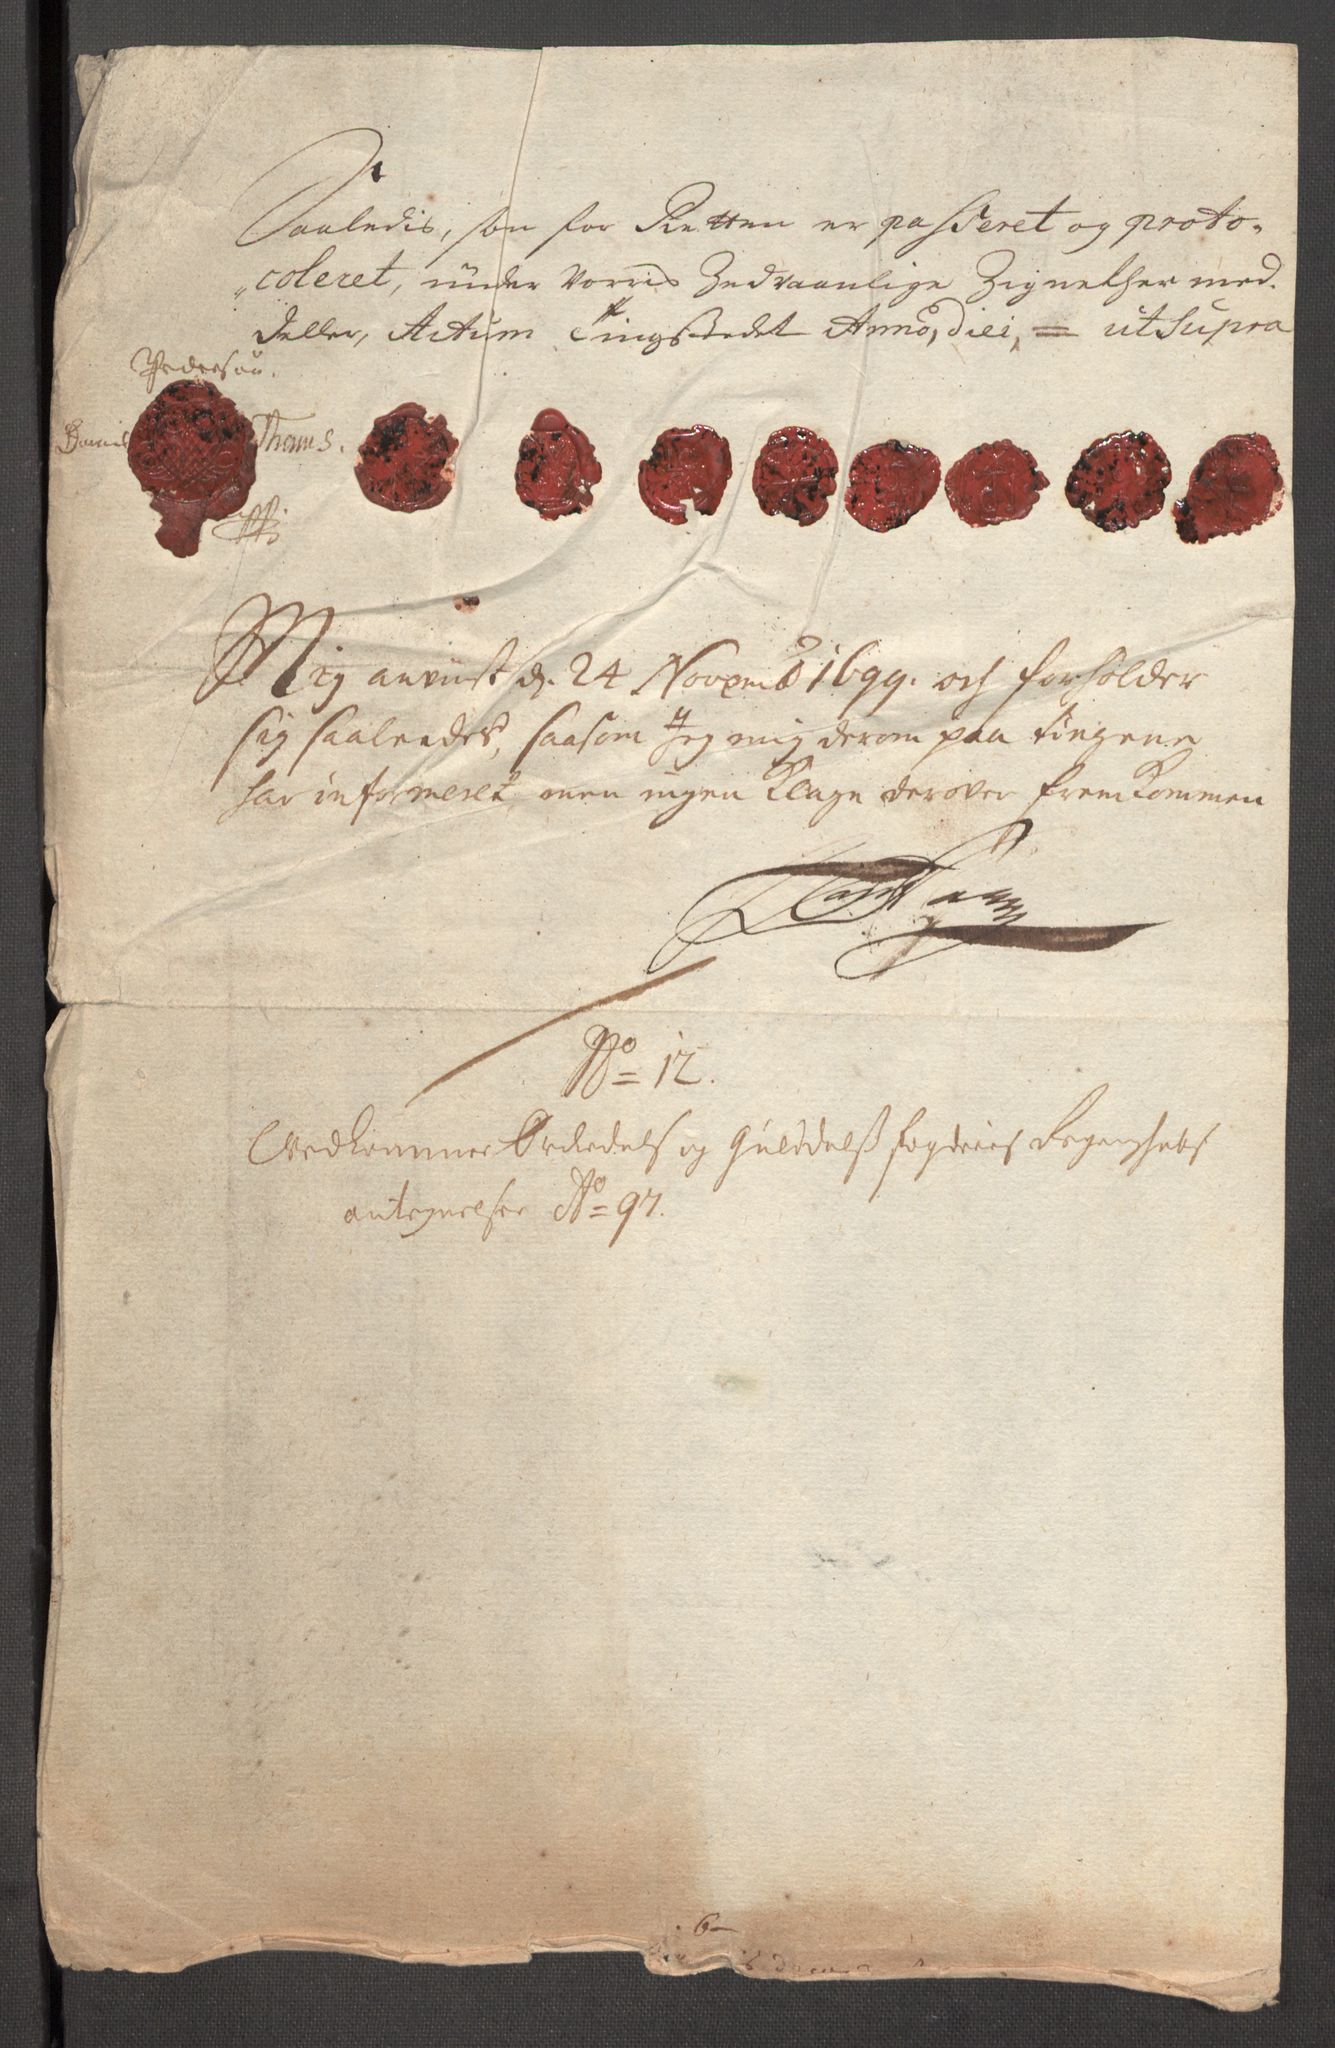 Saaledis, som for Retten er passeret og proto-
coleret, under vorris Zedvaanlige Zignether med
deeller, Actum Tingstedet Anno, diei, = ut Supra
Pedersøn.
Thams.
Mig anviist d. 24 Novemb 1699. och forholder
sig saaleedes, saasom Jeg mig derom paa tingene
har informeret, men ingen Klage derover fremkommen
No = 12.
Vedkommer Ørkedals og Guldals fogderies Regenschabs
antegnelser No = 97.
6